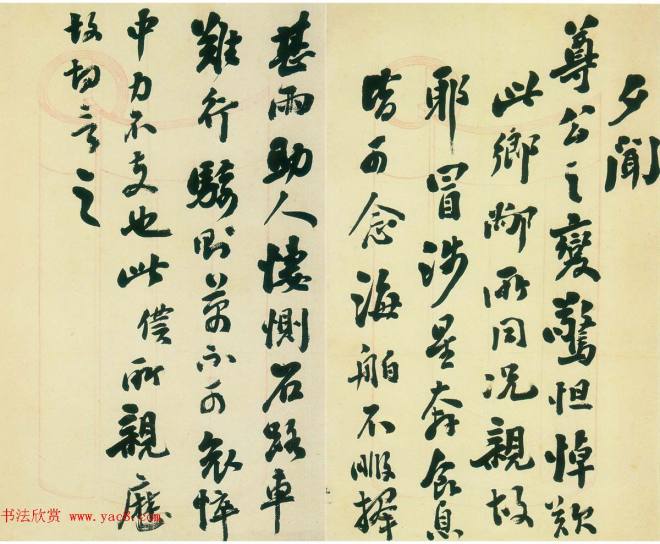 夕聞
尊公之變驚怛悼歎
此鄉鄰所同況親故
耶冒涉星奔食息
皆可念海舶不暇擇
甚雨助人悽惻石路車
難行驟則萬不可哀悴
中力不支也此僕所親歷
故切言之
书法欣赏 www.yac8.com